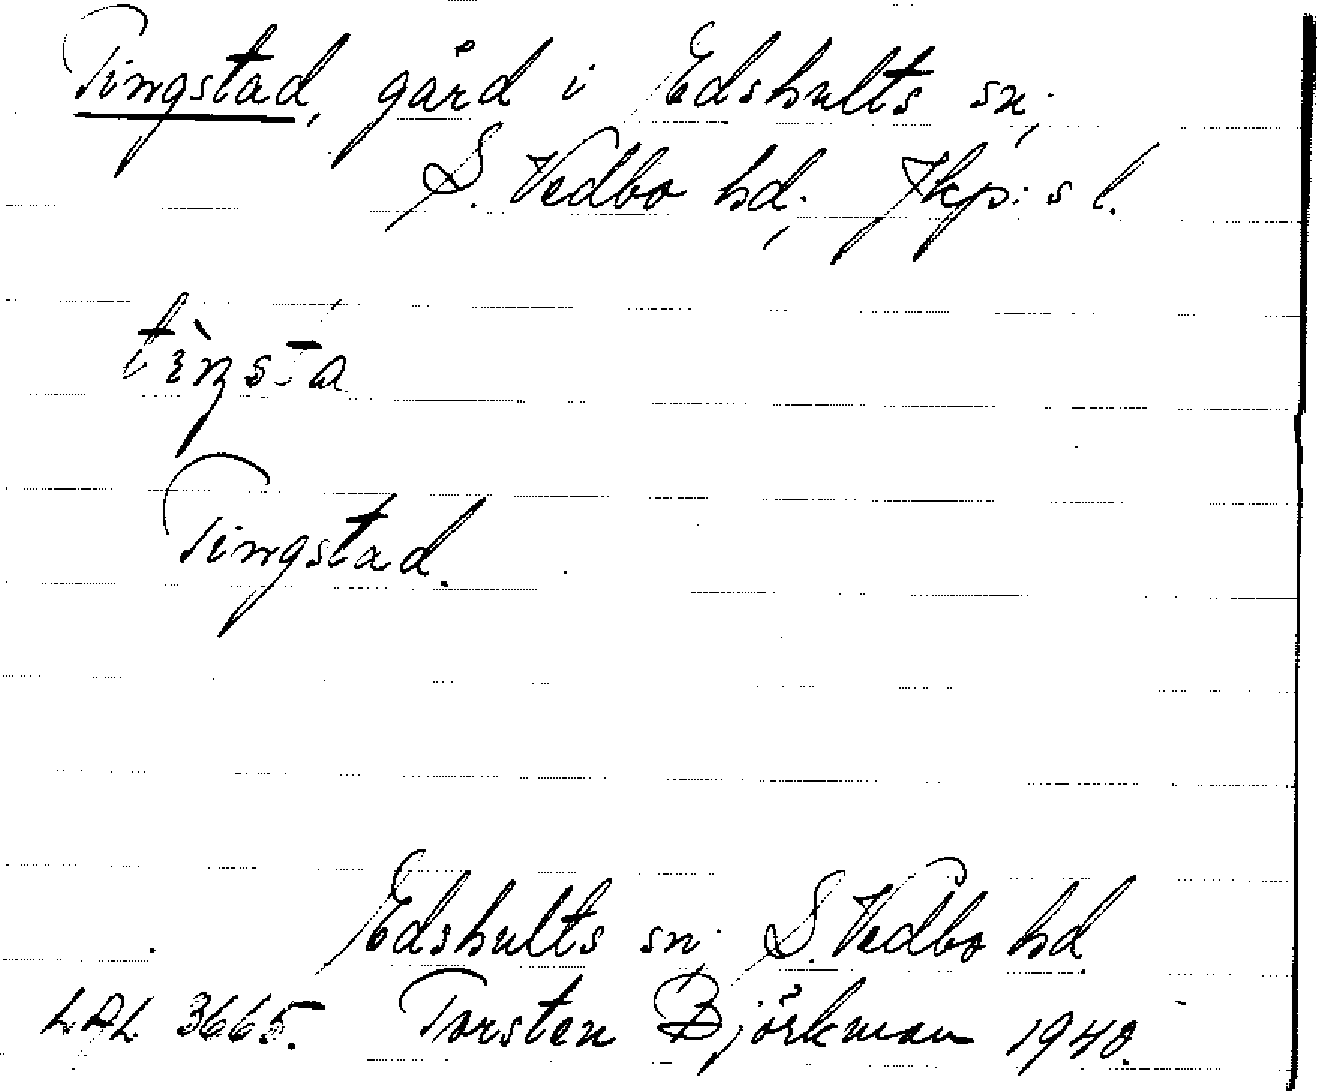 Tingstad, gård i Edshults sn;
S. Vedbo hd; Jkp:s l.
Tingstad.
Edshults sn; S. Vedbo hd
LAL 3665. Torsten Björkman 1940.